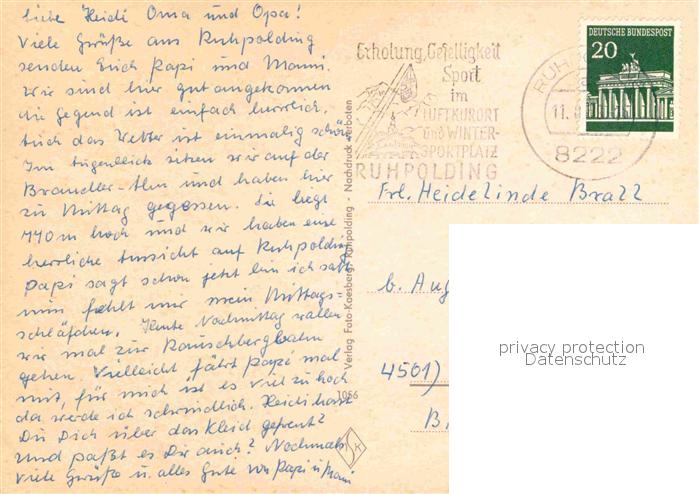 liebe Heidi Oma und Opa!
Viele Grüße aus Ruhpolding
senden Euch Papi und Mami.
Wir sind hier gut angekommen
die Gegend ist einfach herrlich.
Auch das Wetter ist einmalig schön
Im Augenblick sitzen wir auf der
Brandler-Alm und haben hier
zu Mittag gegessen. Sie liegt
1140 m hoch und wir haben eine
herrliche Aussicht auf Ruhpolding
Papi sagt schon jetzt bin ich satt
nun fehlt mir mein Mittags=
schläfchen. Heute Nachmittag wollen
wir mal zur Rauschbergbahn
gehen. Vielleicht fährt Papi mal
mit, für mich ist es viel zu hoch
da werde ich schwindlich. Heidi hast
Du Dich über das Kleid gefreut?
Und paßt es Dir auch? Nochmals
viele Grüße u. alles Gute von Papi u. Mami
Verlag Foto-Kaesberg, Ruhpolding - Nachdruck verboten
1056
K
Erholung, Geselligkeit
Sport
im
LUFTKURORT
und WINTER-
SPORTPLATZ
RUHPOLDING
DEUTSCHE BUNDESPOST
20
RUH
11.
8222
Frl. Heidelinde Brall
b. Aug
4501)
B
privacy protection
Datenschutz